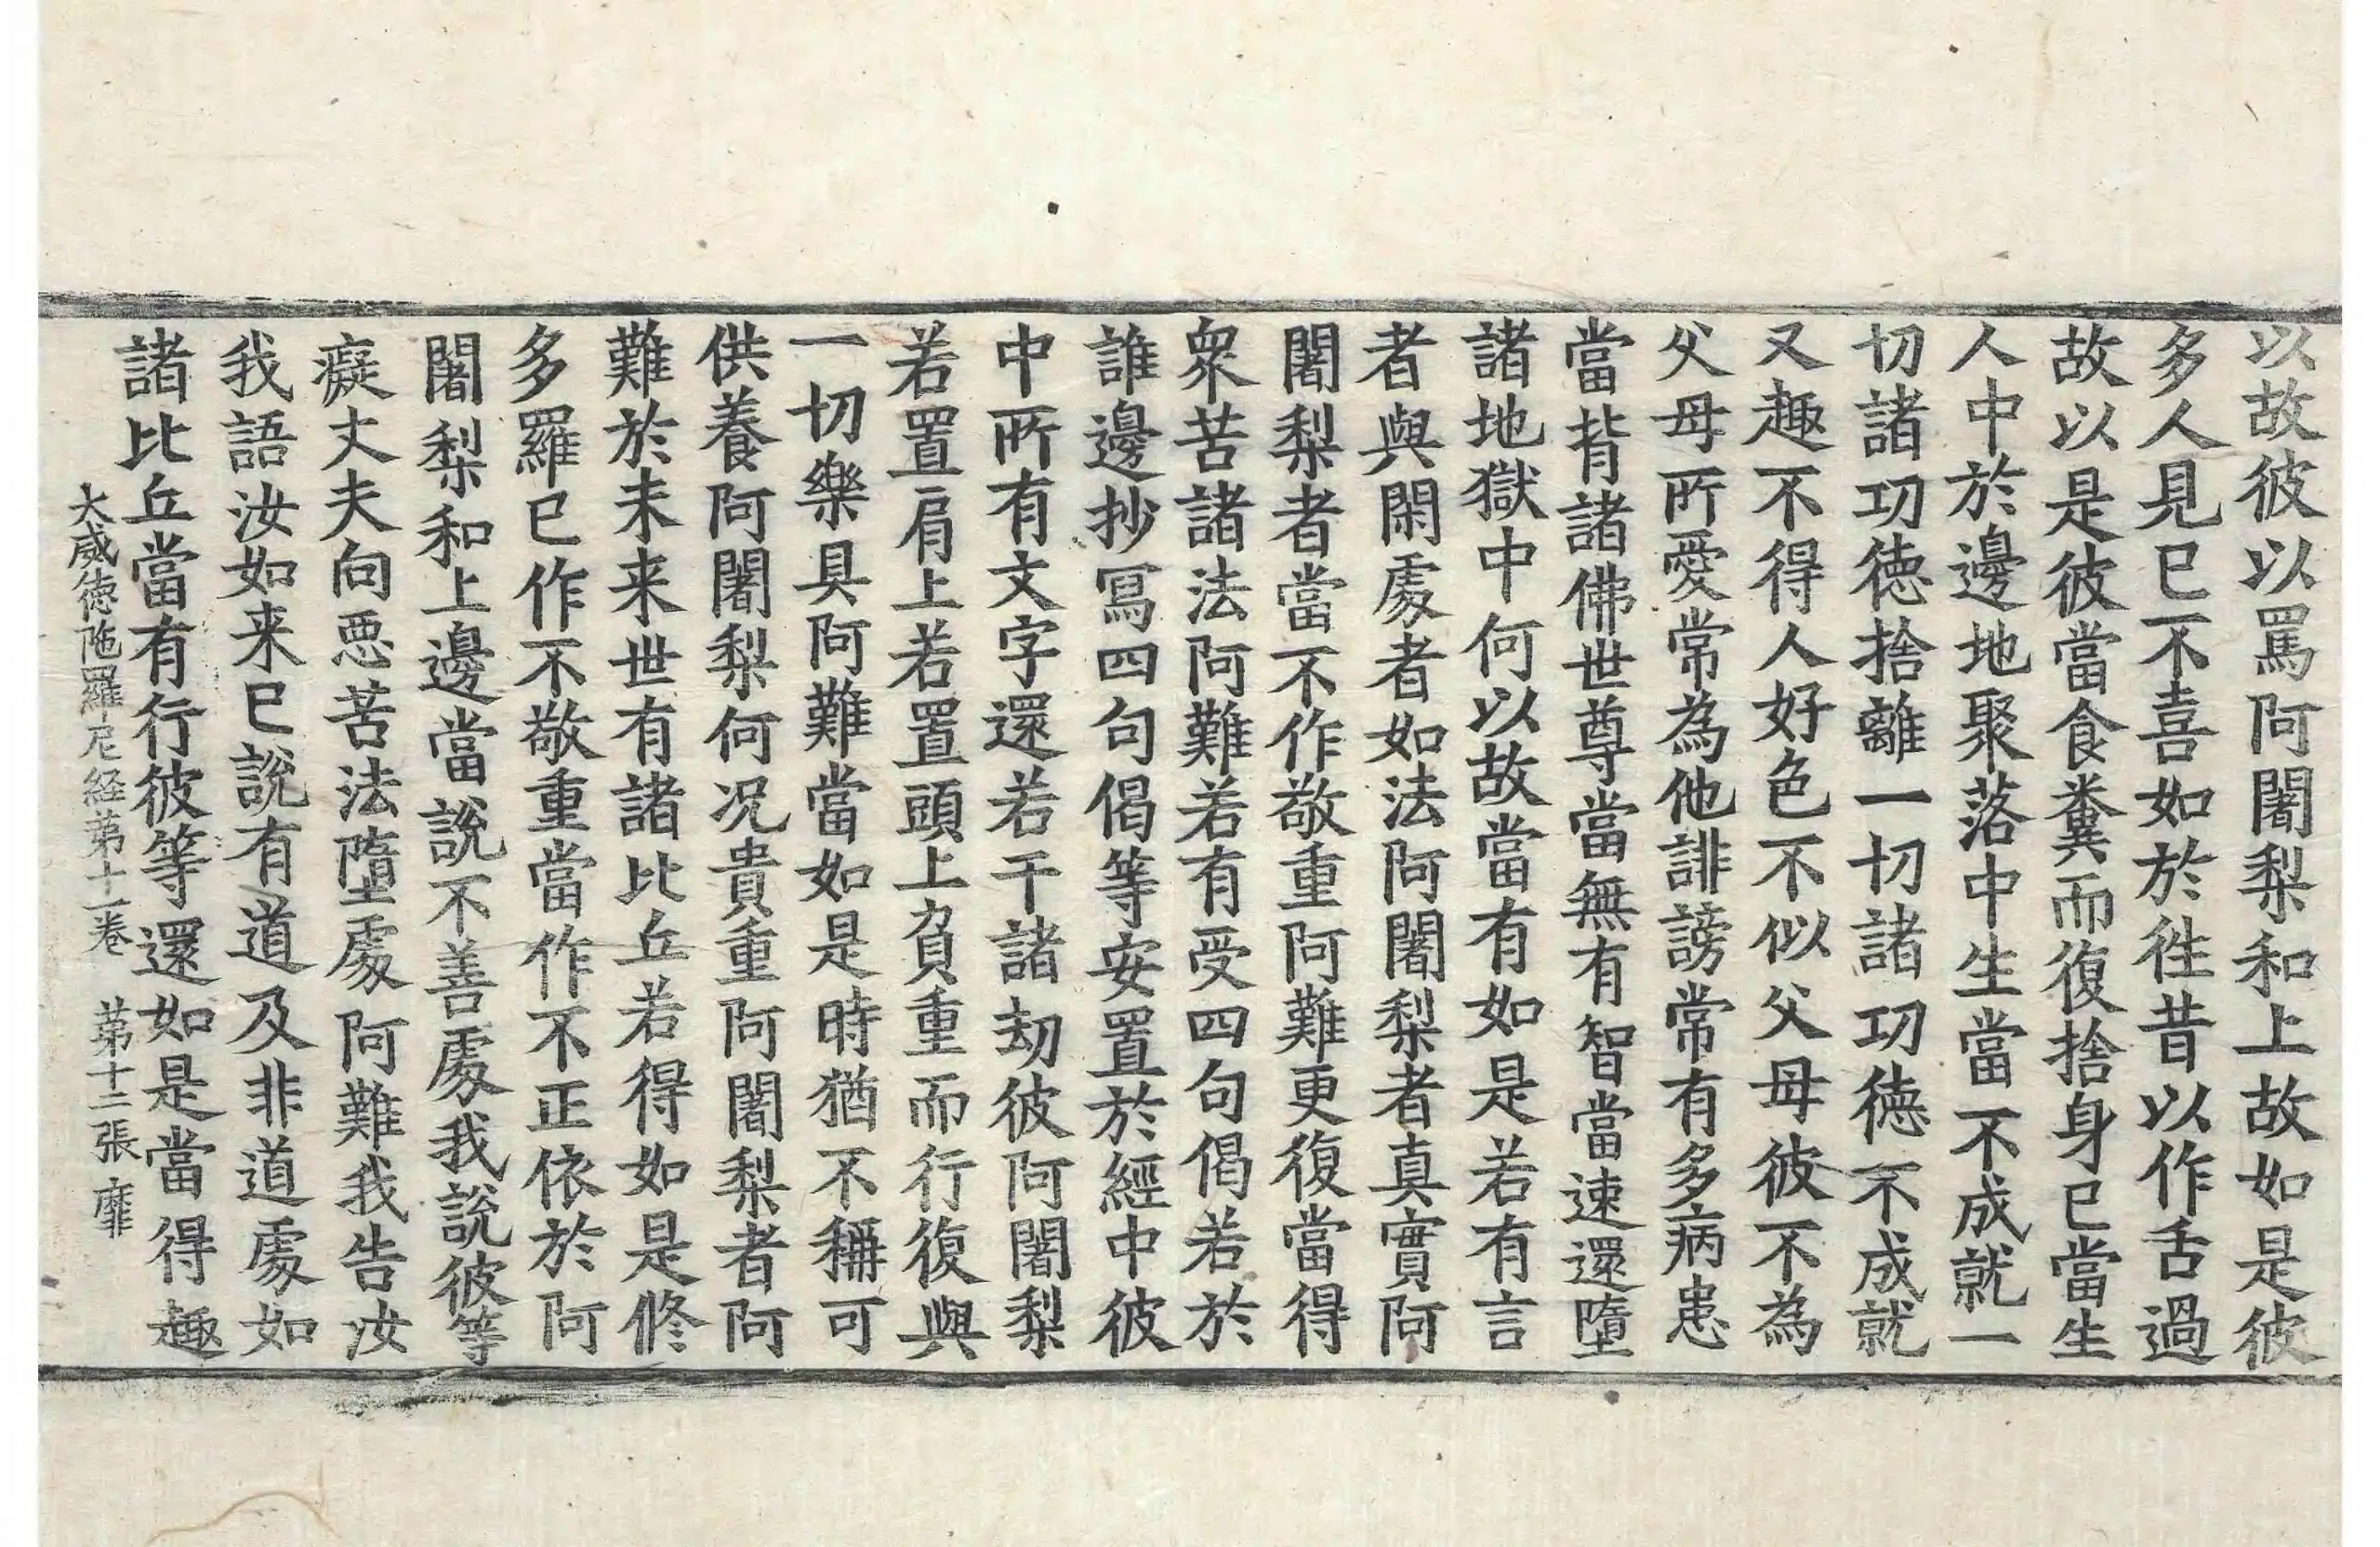 以故彼以罵阿闍梨和上故如是彼
多人見已不喜如於徃昔以作舌過
故以是彼當食糞而復捨身已當生
人中於邊地聚落中生當不成就一
切諸功徳捨離一切諸功徳不成就
又趣不得人好色不似父母彼不為
父母所愛常為他誹謗常有多病患
當背諸佛世尊當無有智當速還墮
諸地獄中何以故當有如是若有言
者與閑處者如法阿闍梨者真實阿
闍梨者當不作敬重阿難更復當得
衆苦諸法阿難若有受四句偈若於
誰邊抄冩四句偈等安置於經中彼
中所有文字還若干諸劫彼阿闍梨
若置肩上若置頭上負重而行復與
一切樂具阿難當如是時猶不稱可
供養阿闍梨何况貴重阿闍梨者阿
難於未来世有諸比丘若得如是修
多羅已作不敬重當作不正依於阿
闍梨和上邊當説不善處我説彼等
癡丈夫向悪苦法墮處阿難我告汝
我語汝如来已説有道及非道處如
諸比丘當有行彼等還如是當得趣
大威徳陁羅尼経第十一卷 第十二張 靡